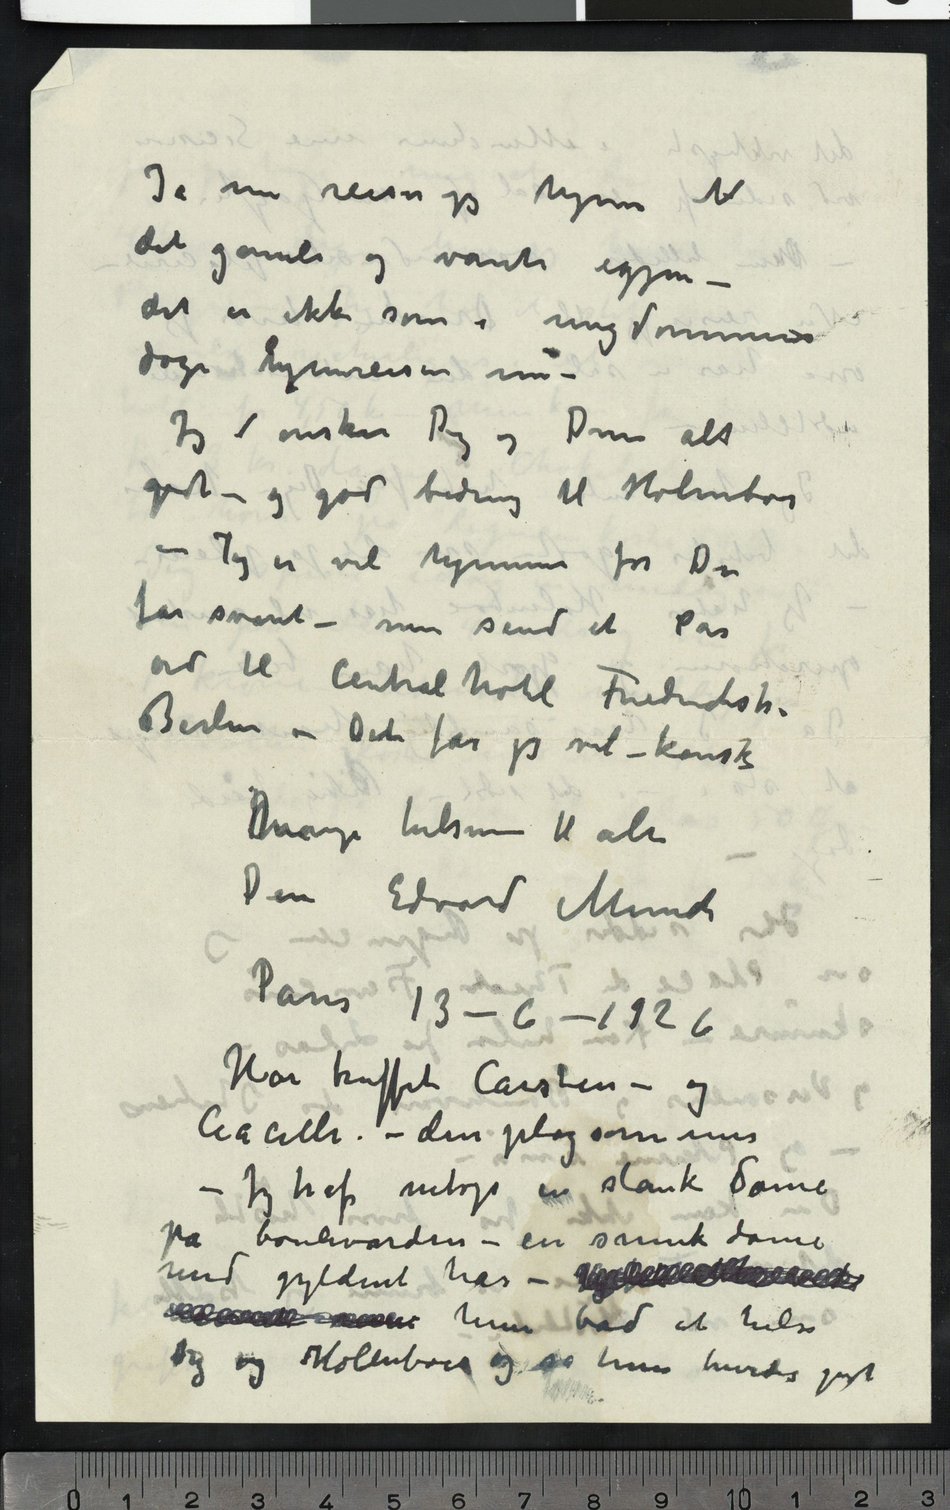 Ja nu reiser jeg hjem til
det gamle og vante igjen –
det er ikke som i ungdommens
dage hjemreisen nu –
Jeg ønsker Dig og Dine alt
godt – og god bedring til Holmboe
– Jeg er vel hjemme før Du
får svart – men send et par
ord til Centralhotel Friedrichstr.
Berlin – Det får jeg vel – kanske
Mange hilsener til alle
Din Edvard Munch
Paris 13 – 6 – 1926
Har truffet Carsten – og
– den plagsomme
– Jeg traf netop en slank dame
på boulevarden – en smuk dame
med gyldent hår –
hun bad at hilse
Dig og Hollmboe og så hun
0 1 2 3 4 5 6 7 8 9 10 1 2 3